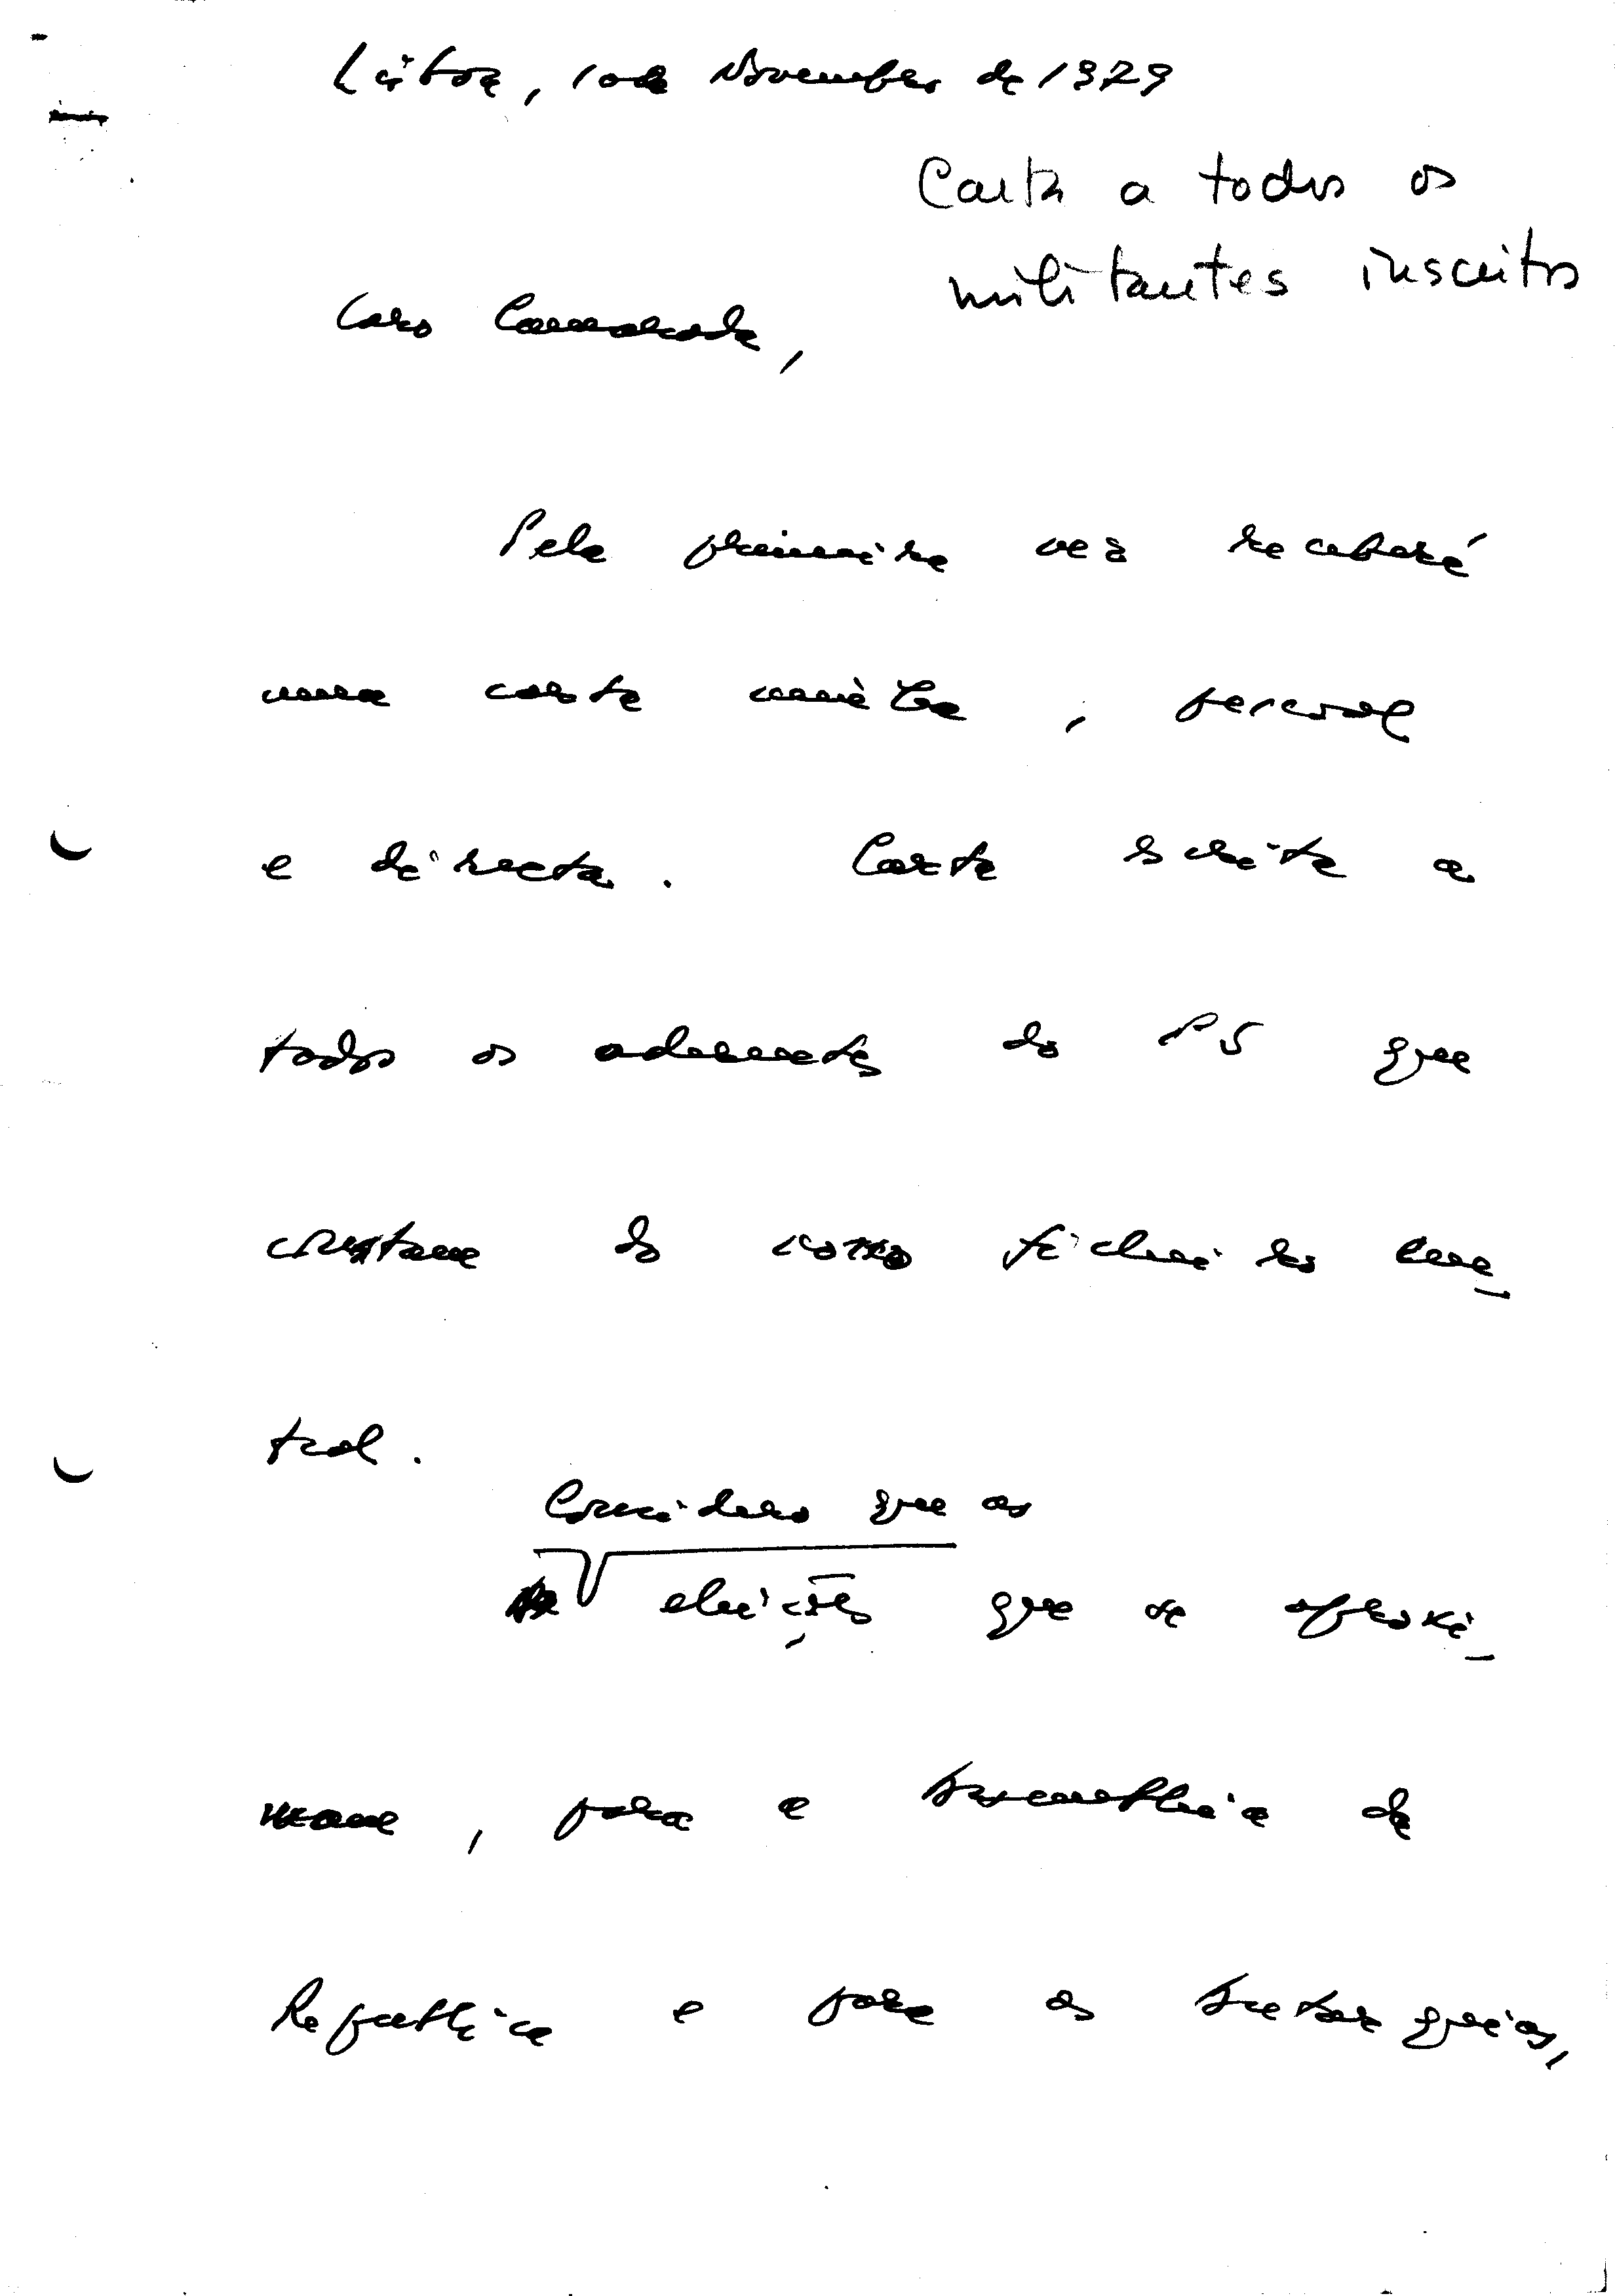 Lisboa, 10 de Novembro de 1979
Carta a todos os
militantes inscritos
Caro Camarada,
Pela primeira vez receberá
uma carta minha, pessoal
e directa. Carta escrita a
todos os aderentes do PS que
constam do nosso ficheiro cen-
tral.
Considero que as
eleições que se aproxi-
mam, para a Assembleia da
República e para as Autarquias,